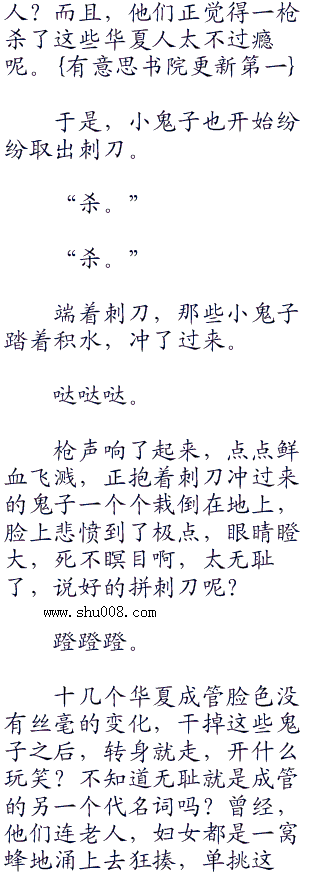 人？而且，他们正觉得一枪
杀了这些华夏人太不过瘾
呢。{有意思书院更新第一}
于是，小鬼子也开始纷
纷取出刺刀。
“杀。”
“杀。”
端着刺刀，那些小鬼子
踏着积水，冲了过来。
哒哒哒。
枪声响了起来，点点鲜
血飞溅，正抱着刺刀冲过来
的鬼子一个个栽倒在地上，
脸上悲愤到了极点，眼睛瞪
大，死不瞑目啊，太无耻
了，说好的拼刺刀呢？
www.shu008.com
蹬蹬蹬。
十几个华夏成管脸色没
有丝毫的变化，干掉这些鬼
子之后，转身就走，开什么
玩笑？不知道无耻就是成管
的另一个代名词吗？曾经，
他们连老人，妇女都是一窝
蜂地涌上去狂揍，单挑这